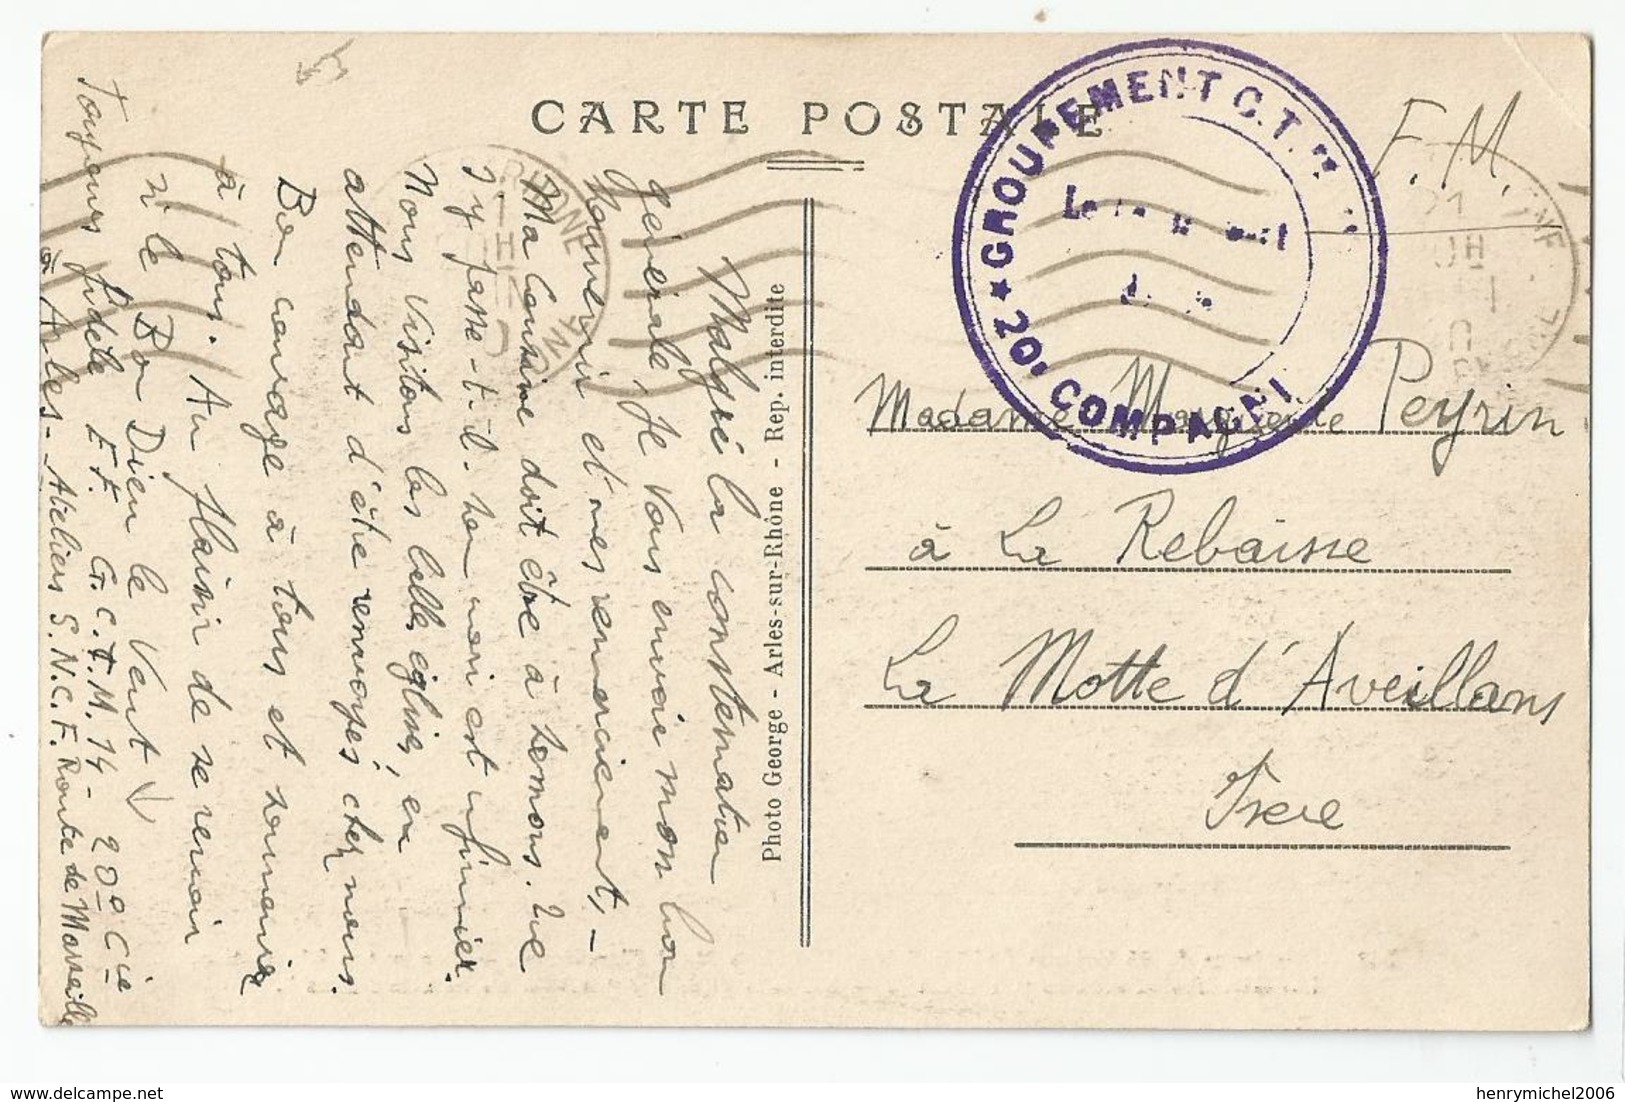 CARTE POSTALE
F.M.
★ GROUPEMENT C.T.
20e COMPAGNI
RHONE
Madame Marguerite Peyrin
à La Rebaisse
La Motte d'Aveillans
Isere
Photo George - Arles-sur-Rhône - Rep. interdite
Malgré la consternation
générale Je vous envoie mon bon
souvenir et mes remerciements, -
Ma Cousine doit être à
s'y passe-t-il. son mari est infirmier.
Nous visitons les belles eglises, en
attendant d'être renvoyés chez nous.
Bon courage à tous et souvenirs
à tous. Au plaisir de se revoir
si le Bon Dieu le veut
Toujours fidèle EF. G.C.T.M. 14 - 20e Cie
à Arles - Ateliers S.N.C.F. Route de Marseille
henrymichel2006
delcampe.net